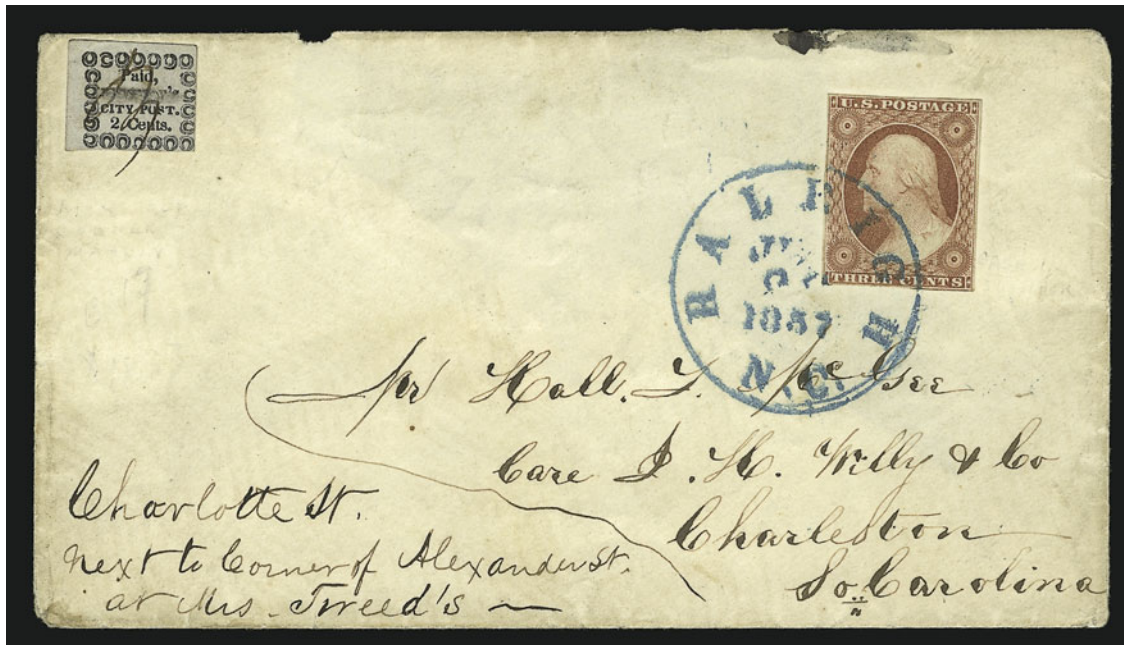 Paid,
CITY POST.
2 Cents.
U.S. POSTAGE
THREE CENTS
RALEIGH
1857
N.C.
Mr Hall. T. McGee
Care J. H. Willy & Co
Charleston
So. Carolina
Charlotte St.
next to Corner of Alexander St.
at Mrs. Tweed's —